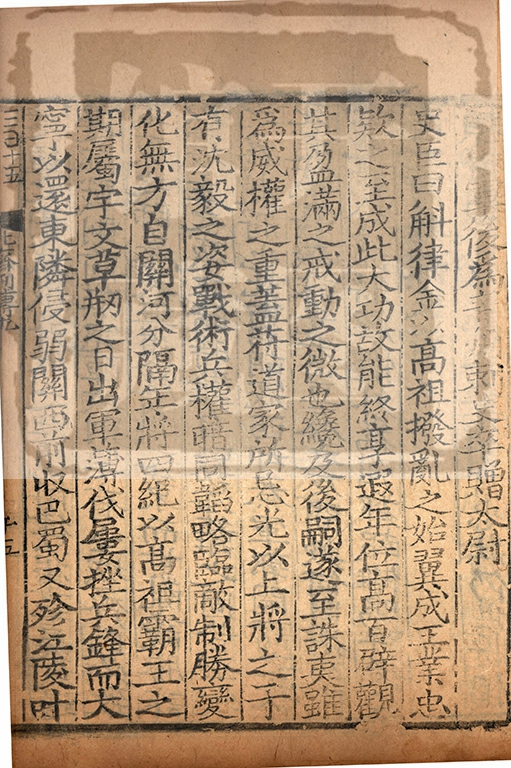 後爲刺史卒贈太尉
史臣曰斛律金以高祖撥亂之始翼成王業忠
欵之至成此大功故能終享遐年位高百辟觀
其盈滿之戒動之微也纔及後嗣遂至誅夷雖
爲威權之重蓋符道家所忌光以上將之子
有沈毅之姿戰術兵權暗同韜略臨敵制勝變
化無方自關河分隔年將四紀以高祖霸王之
期屬宇文草刱之日出軍薄伐屢挫兵鋒而大
寧以還東隣侵弱關西前收巴蜀又殄江陵叶